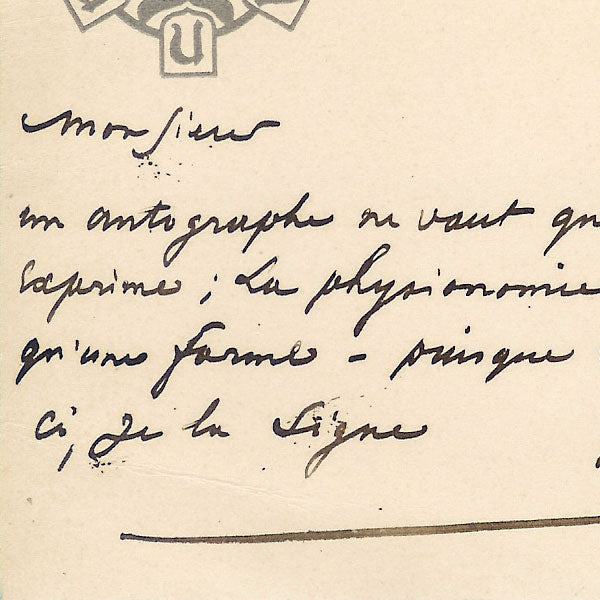 U
Monsieur
un autographe ne vaut qu
exprime ; La physionomie
qu'une forme - puisque
ci, je la signe